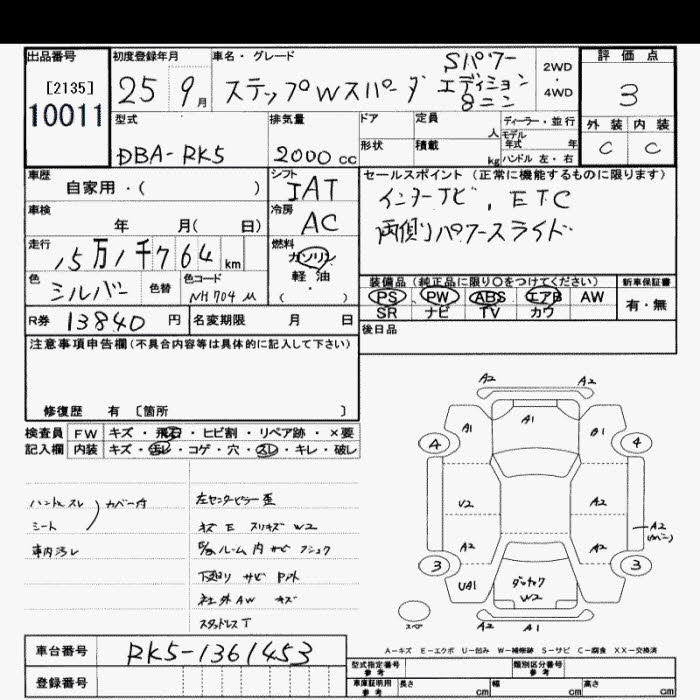 出品番号 初度登録年月 車名・グレード 評価点
[2135]
10011
25 9月 ステップWスパーダ Sパワーエディション 8ニン 2WD・4WD
3
外装 内装
C C
型式 排気量 ドア 定員 人 ディーラー・並行
モデル年式 年
DBA-RK5 2000cc 形状 積載 kg ハンドル 左・右
車歴 シフト セールスポイント(正常に機能するものに限ります)
自家用・( ) IAT インターナビ, ETC
車検 冷房 両側パワースライド
年 月( 日) AC
走行 燃料
15万1千764km ガソリン
軽・油
( )
色 色替 色コード
シルバー NH704M
装備品(純正品に限り○をつけてください) 新車保証書
PS PW ABS エアB AW 有・無
SR ナビ TV カワ
R券 13840円 名変期限 月 日 後日品
注意事項申告欄(不具合内容等は具体的に記入して下さい)
修復歴 有 〔箇所 〕
検査員 FW キズ・飛石・ヒビ割・リペア跡・×要
記入欄 内装 キズ・汚レ・コゲ・穴・スレ・キレ・破レ
ハンドルスレ
シート カバー付
車内汚レ
左センターピラー歪
キズ E スリキズ W2
ルーム内 サビ フショク
下廻り サビ
社外AW キズ
スタッドレスT
A2 A2
A1 A1 A1
4 4
U2 A2
A2 A2 A2
3 3
UA1 W2
スペア A2 A1
A-キズ E-エクボ U-凹み W-補修跡 S-サビ C-腐食 XX-交換済
車台番号 RK5-1361453
登録番号
型式指定番号 参考 類別区分番号 参考
車庫証明用 参考 長さ cm 幅 cm 高さ cm